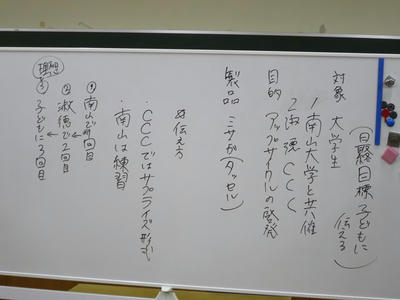 対象 大学生
(最終目標 子どもに
伝える)
1 南山大学と共催
2 淑徳 CCC
目的 アップサイクルの啓発
製品 ミサンガ(タッセル)
伝え方
・CCCではサプライズ形式
・南山は練習
理想
① 南山で1回目
② 淑徳で2回目
③ 子どもに3回目